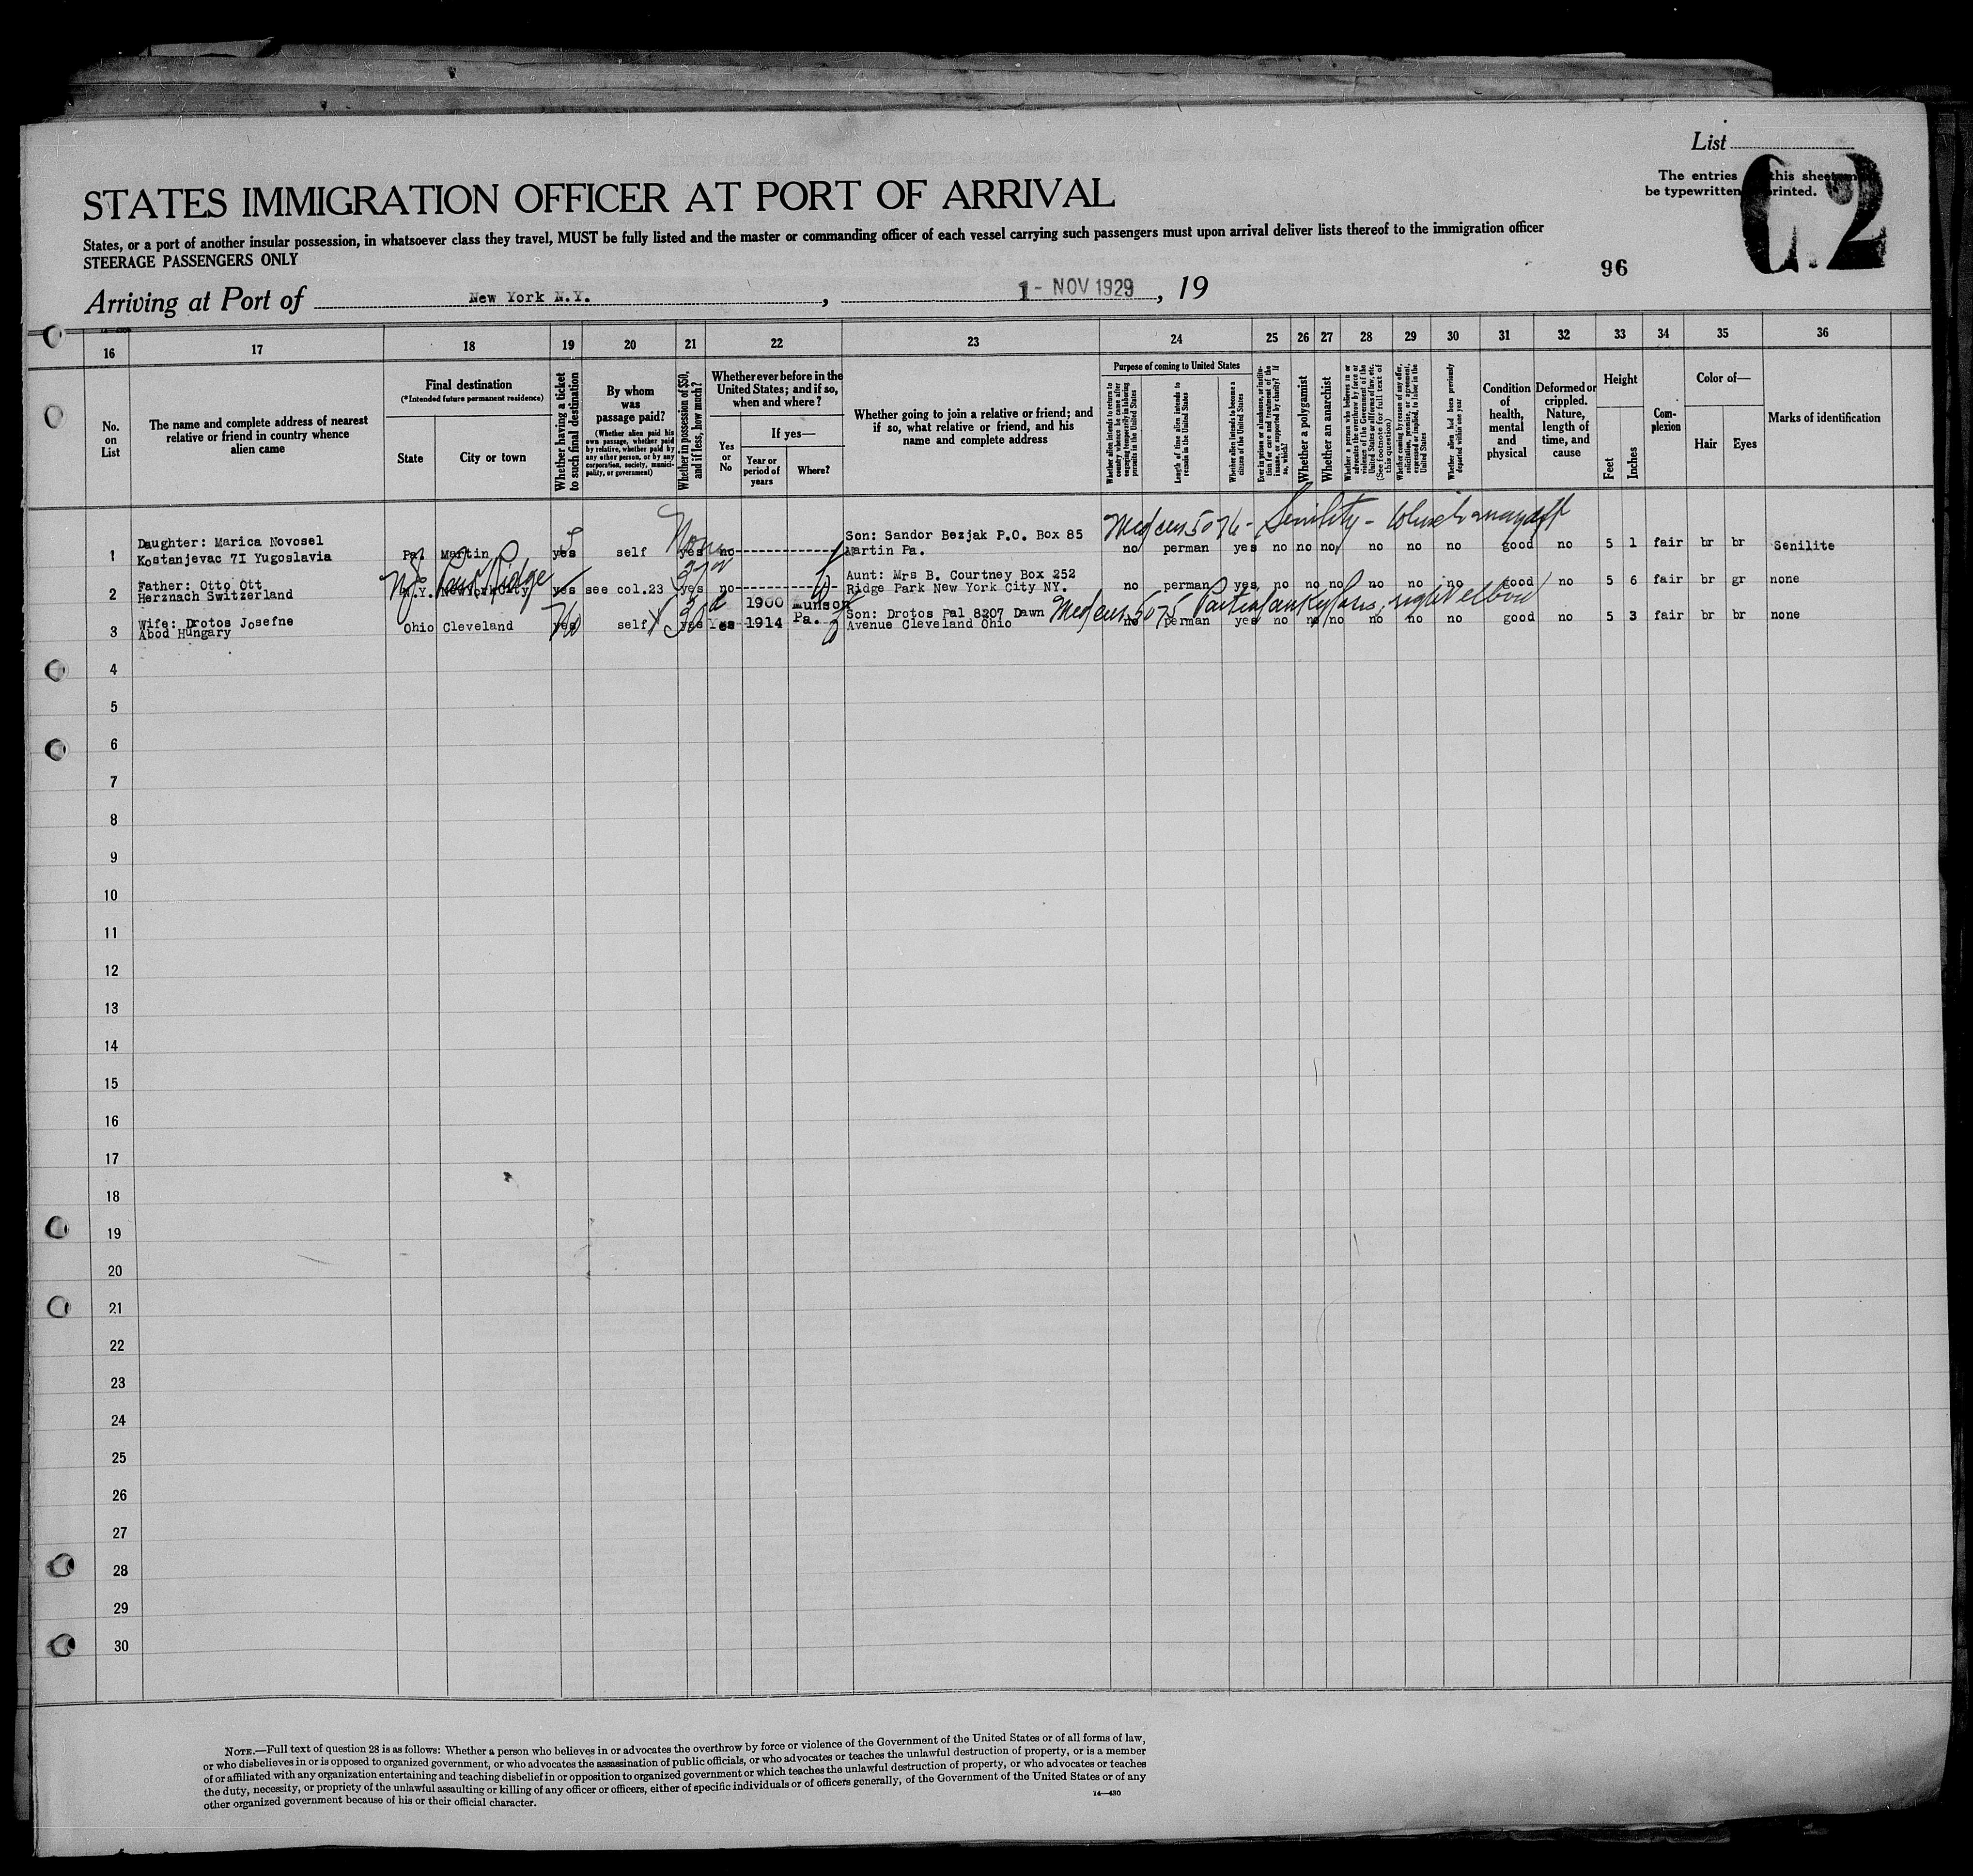 List
The entries this sheet
be typewritten printed.
C.2
STATES IMMIGRATION OFFICER AT PORT OF ARRIVAL
States, or a port of another insular possession, in whatsoever class they travel, MUST be fully listed and the master or commanding officer of each vessel carrying such passengers must upon arrival deliver lists thereof to the immigration officer
STEERAGE PASSENGERS ONLY
96
Arriving at Port of New York N.Y. , 1 - NOV 1929 , 19
16 17 18 19 20 21 22 23 24 25 26 27 28 29 30 31 32 33 34 35 36
No.
on
List
The name and complete address of nearest
relative or friend in country whence
alien came
Final destination
(*Intended future permanent residence)
State
City or town
Whether having a ticket
to such final destination
By whom
was
passage paid?
(Whether alien paid his
own passage, whether paid
by relative, whether paid by
any other person, or by any
corporation, society, munici-
pality, or government)
Whether in possession of $50,
and if less, how much?
Whether ever before in the
United States; and if so,
when and where?
Yes
or
No
If yes—
Year or
period of
years
Where?
Whether going to join a relative or friend; and
if so, what relative or friend, and his
name and complete address
Purpose of coming to United States
Whether alien intends to return to
country whence he came after
engaging temporarily in laboring
pursuits in the United States
Length of time alien intends to
remain in the United States
Whether alien intends to become a
citizen of the United States
Ever in prison or almshouse, or institu-
tion for care and treatment of the
insane, or supported by charity? If
so, which?
Whether a polygamist
Whether an anarchist
Whether a person who believes in or
advocates the overthrow by force or
violence of the Government of the
United States or all forms of law, etc.
(See footnote for full text of
this question)
Whether coming by reason of any offer,
solicitation, promise, or agreement,
expressed or implied, to labor in the
United States
Whether alien had been previously
deported within one year
Condition
of
health,
mental
and
physical
Deformed or
crippled.
Nature,
length of
time, and
cause
Height
Feet
Inches
Com-
plexion
Color of—
Hair
Eyes
Marks of identification
Med cert 5076 - Senility -
None
Daughter: Marica Novosel Son: Sandor Bezjak P.O. Box 85
1 Kostanjevac 7I Yugoslavia Pa. Martin yes self yes no Martin Pa. no perman yes no no no no no no good no 5 1 fair br br Senilite
N.J. Park Ridge
Father: Otto Ott Aunt: Mrs B. Courtney Box 252
2 Herznach Switzerland N.Y. New York City yes see col.23 yes no Ridge Park New York City NY. no perman yes no no no no no no good no 5 6 fair br gr none
Med cert 5075 Partial ankylosis, right elbow
Wife: Drotos Josefne 1900 Munson Son: Drotos Pal 8207 Dawn
3 Abod Hungary Ohio Cleveland yes self yes Yes 1914 Pa. Avenue Cleveland Ohio no perman yes no no no no no no good no 5 3 fair br br none
4
5
6
7
8
9
10
11
12
13
14
15
16
17
18
19
20
21
22
23
24
25
26
27
28
29
30
NOTE.—Full text of question 28 is as follows: Whether a person who believes in or advocates the overthrow by force or violence of the Government of the United States or of all forms of law,
or who disbelieves in or is opposed to organized government, or who advocates the assassination of public officials, or who advocates or teaches the unlawful destruction of property, or is a member
of or affiliated with any organization entertaining and teaching disbelief in or opposition to organized government or which teaches the unlawful destruction of property, or who advocates or teaches
the duty, necessity, or propriety of the unlawful assaulting or killing of any officer or officers, either of specific individuals or of officers generally, of the Government of the United States or of any
other organized government because of his or their official character.
14—430